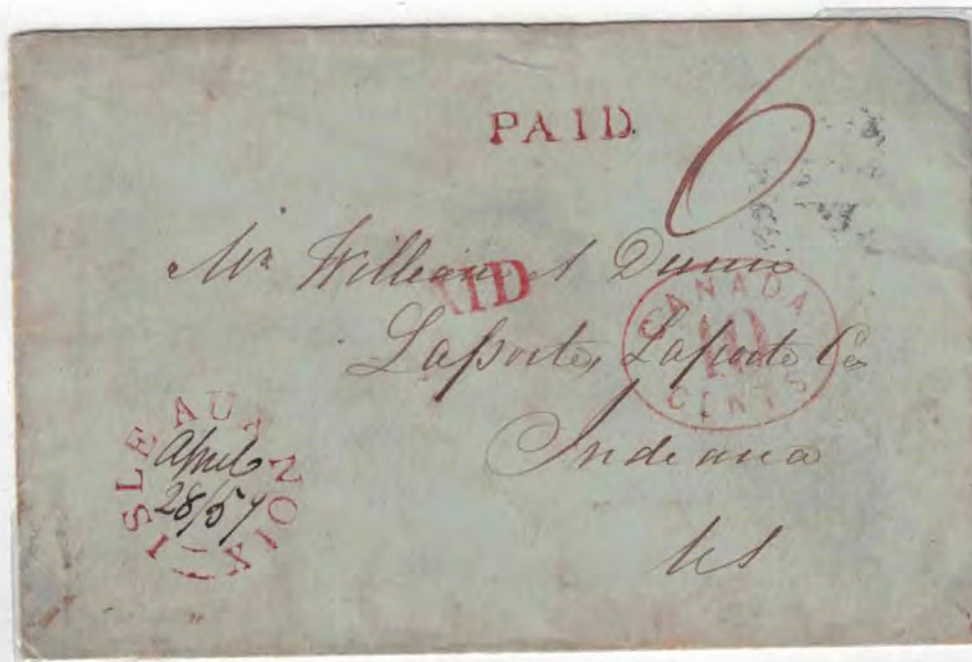 PAID
6
Mr William A
AID
CANADA
10
CENTS
Laporte, Laporte Co
Indiana
US
ISLE AUX NOIX
April
28/57